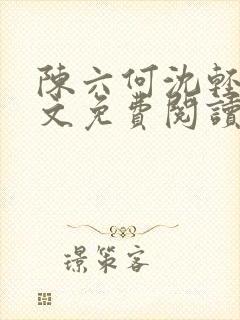 陳六何沈輕
文免費閱讀
璟策客